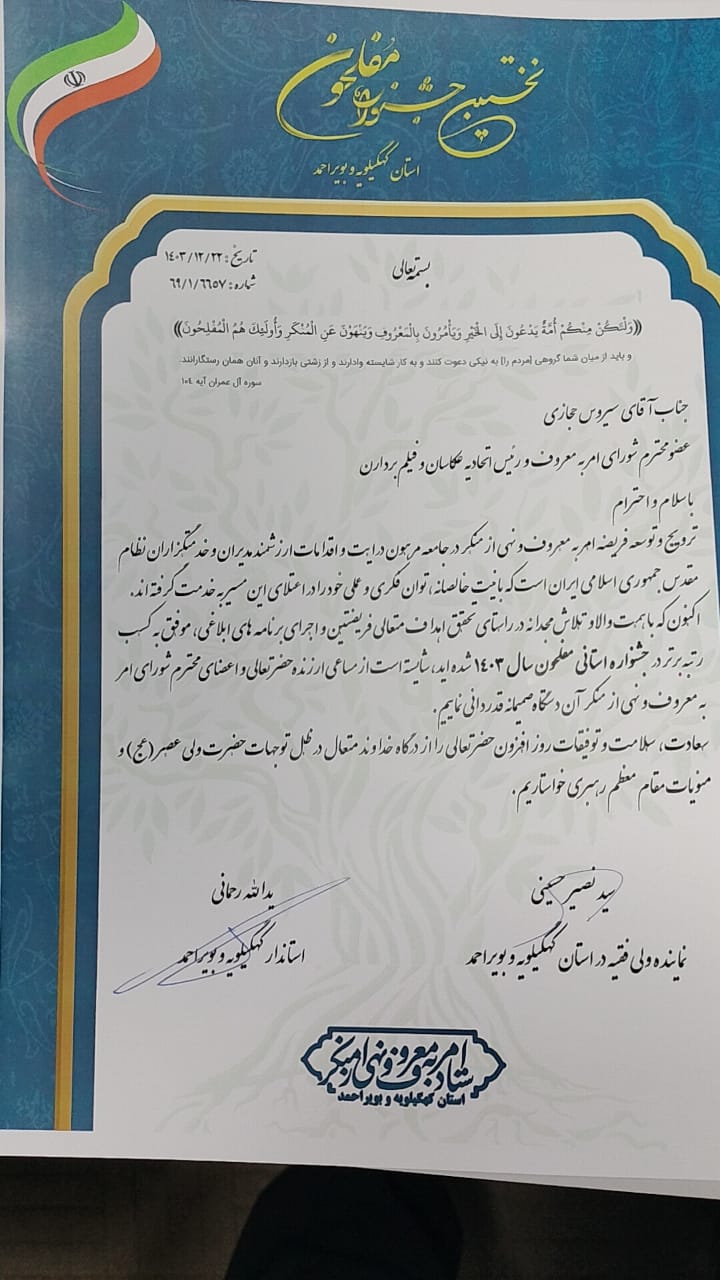 نخستین جشنواره مفلحون
استان کهگیلویه و بویراحمد
تاریخ: ۱۴۰۳/۱۲/۲۲
بسمه تعالی
شماره: ۶۹/۱/۶۶۵۷
((وَلْتَكُنْ مِنْكُمْ أُمَّةٌ يَدْعُونَ إِلَى الْخَيْرِ وَيَأْمُرُونَ بِالْمَعْرُوفِ وَيَنْهَوْنَ عَنِ الْمُنْكَرِ وَأُولَئِكَ هُمُ الْمُفْلِحُونَ))
و باید از میان شما گروهی [مردم را] به نیکی دعوت کنند و به کار شایسته وادارند و از زشتی بازدارند و آنان همان رستگارانند.
سوره آل عمران آیه ۱۰۴
جناب آقای سیروس حجازی
عضو محترم شورای امر به معروف و رئیس اتحادیه عکاسان و فیلم بردارن
با سلام و احترام
ترویج و توسعه فریضه امر به معروف و نهی از منکر در جامعه مرهون درایت و اقدامات ارزشمند مدیران و خدمتگزاران نظام
مقدس جمهوری اسلامی ایران است که با نیت خالصانه، توان فکری و علمی خود را در اعتلای این مسیر به خدمت گرفته اند.
اکنون که با همت والا و تلاش مجدانه در راستای تحقق اهداف متعالی فریضتین و اجرای برنامه های ابلاغی، موفق به کسب
رتبه برتر در جشنواره استانی مفلحون سال ۱۴۰۳ شده اید، شایسته است از مساعی ارزنده حضرتعالی و اعضای محترم شورای امر
به معروف و نهی از منکر آن دستگاه صمیمانه قدردانی نماییم.
سعادت، سلامت و توفیقات روز افزون حضرتعالی را از درگاه خداوند متعال در ظل توجهات حضرت ولی عصر (عج) و
منویات مقام معظم رهبری خواستاریم.
سید نصیر حسینی
یدالله رحمانی
نماینده ولی فقیه در استان کهگیلویه و بویراحمد
استاندار کهگیلویه و بویراحمد
ستاد امر به معروف و نهی از منکر
استان کهگیلویه و بویراحمد